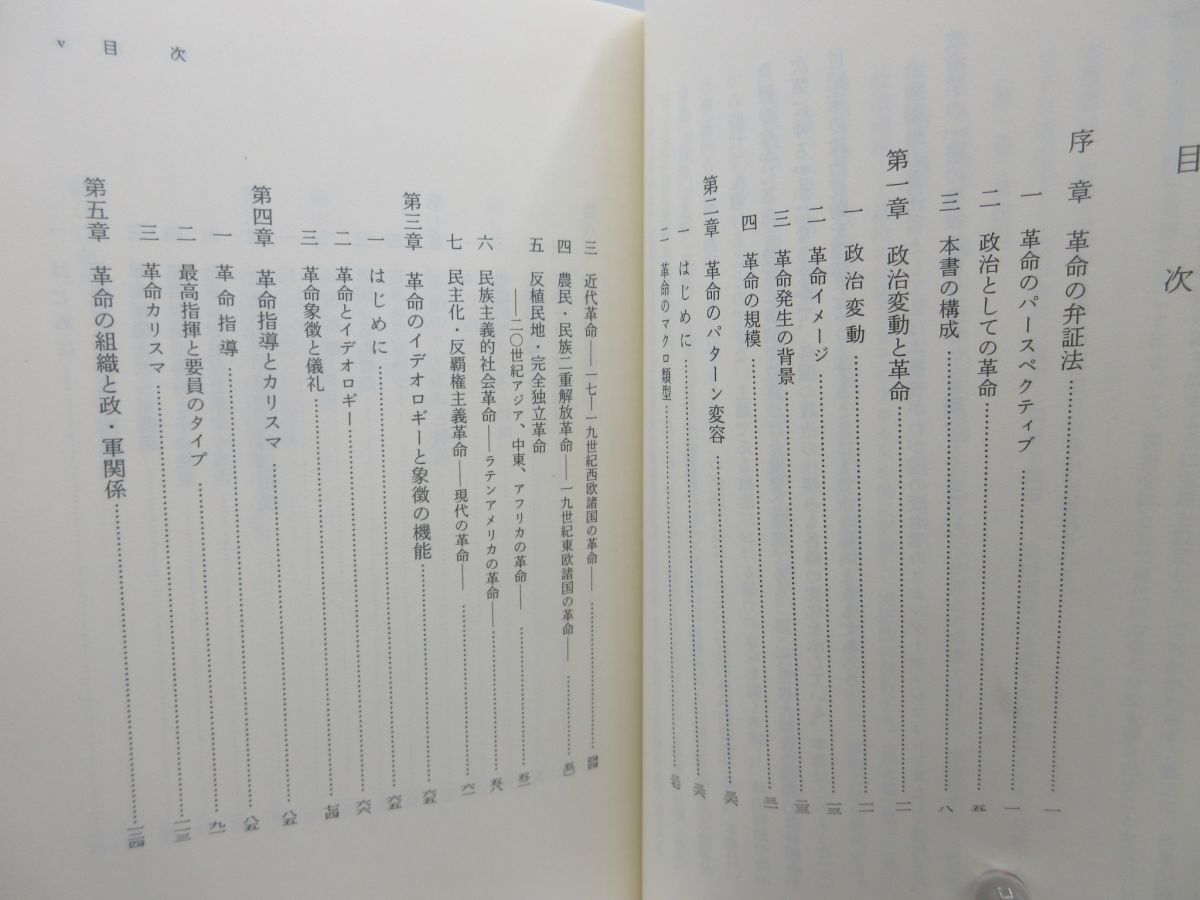 目次
序章 革命の弁証法……一
一 革命のパースペクティブ……一
二 政治としての革命……五
三 本書の構成……八
第一章 政治変動と革命……一一
一 政治変動……一一
二 革命イメージ……一三
三 革命発生の背景……二三
四 革命の規模……三一
第二章 革命のパターン変容……三六
一 はじめに……三六
二 革命のマクロ類型……三七
三 近代革命――一七―一九世紀西欧諸国の革命――……四四
四 農民・民族二重解放革命――一九世紀東欧諸国の革命――……五〇
五 反植民地・完全独立革命
――二〇世紀アジア、中東、アフリカの革命――……五二
六 民族主義的社会革命――ラテンアメリカの革命――……五八
七 民主化・反覇権主義革命――現代の革命――……六一
第三章 革命のイデオロギーと象徴の機能……六五
一 はじめに……六五
二 革命とイデオロギー……六六
三 革命象徴と儀礼……七四
第四章 革命指導とカリスマ……八五
一 革命指導……八五
二 最高指揮と要員のタイプ……九一
三 革命カリスマ……一一三
第五章 革命の組織と政・軍関係……一三四
v 目次